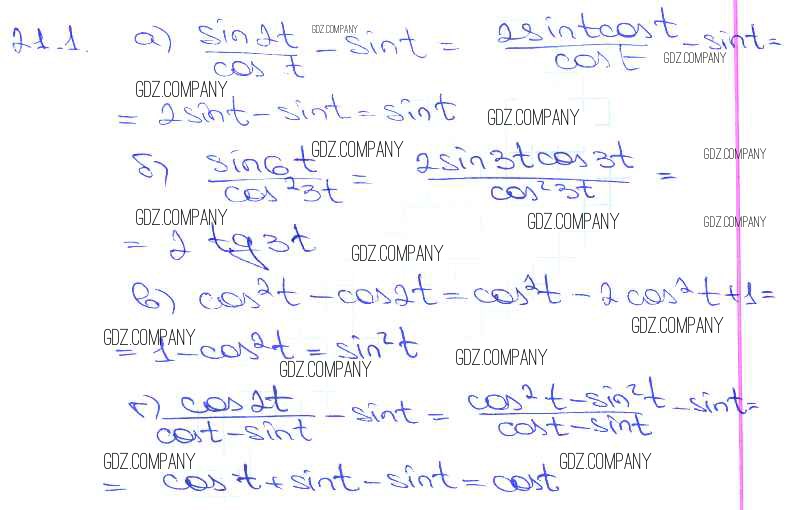 21.1. а) sin2t/cos t - sint = 2sintcost/cost - sint =
GDZ.COMPANY GDZ.COMPANY
GDZ.COMPANY
= 2sint - sint = sint GDZ.COMPANY
б) sin6t/cos²3t = 2sin3tcos3t/cos²3t =
GDZ.COMPANY GDZ.COMPANY
GDZ.COMPANY GDZ.COMPANY GDZ.COMPANY
= 2 tg3t GDZ.COMPANY
в) cos²t - cos2t = cos²t - 2cos²t + 1 =
GDZ.COMPANY GDZ.COMPANY
= 1 - cos²t = sin²t GDZ.COMPANY
GDZ.COMPANY
г) cos2t/cost - sint - sint = cos²t - sin²t/cost - sint - sint =
GDZ.COMPANY GDZ.COMPANY
= cost + sint - sint = cost